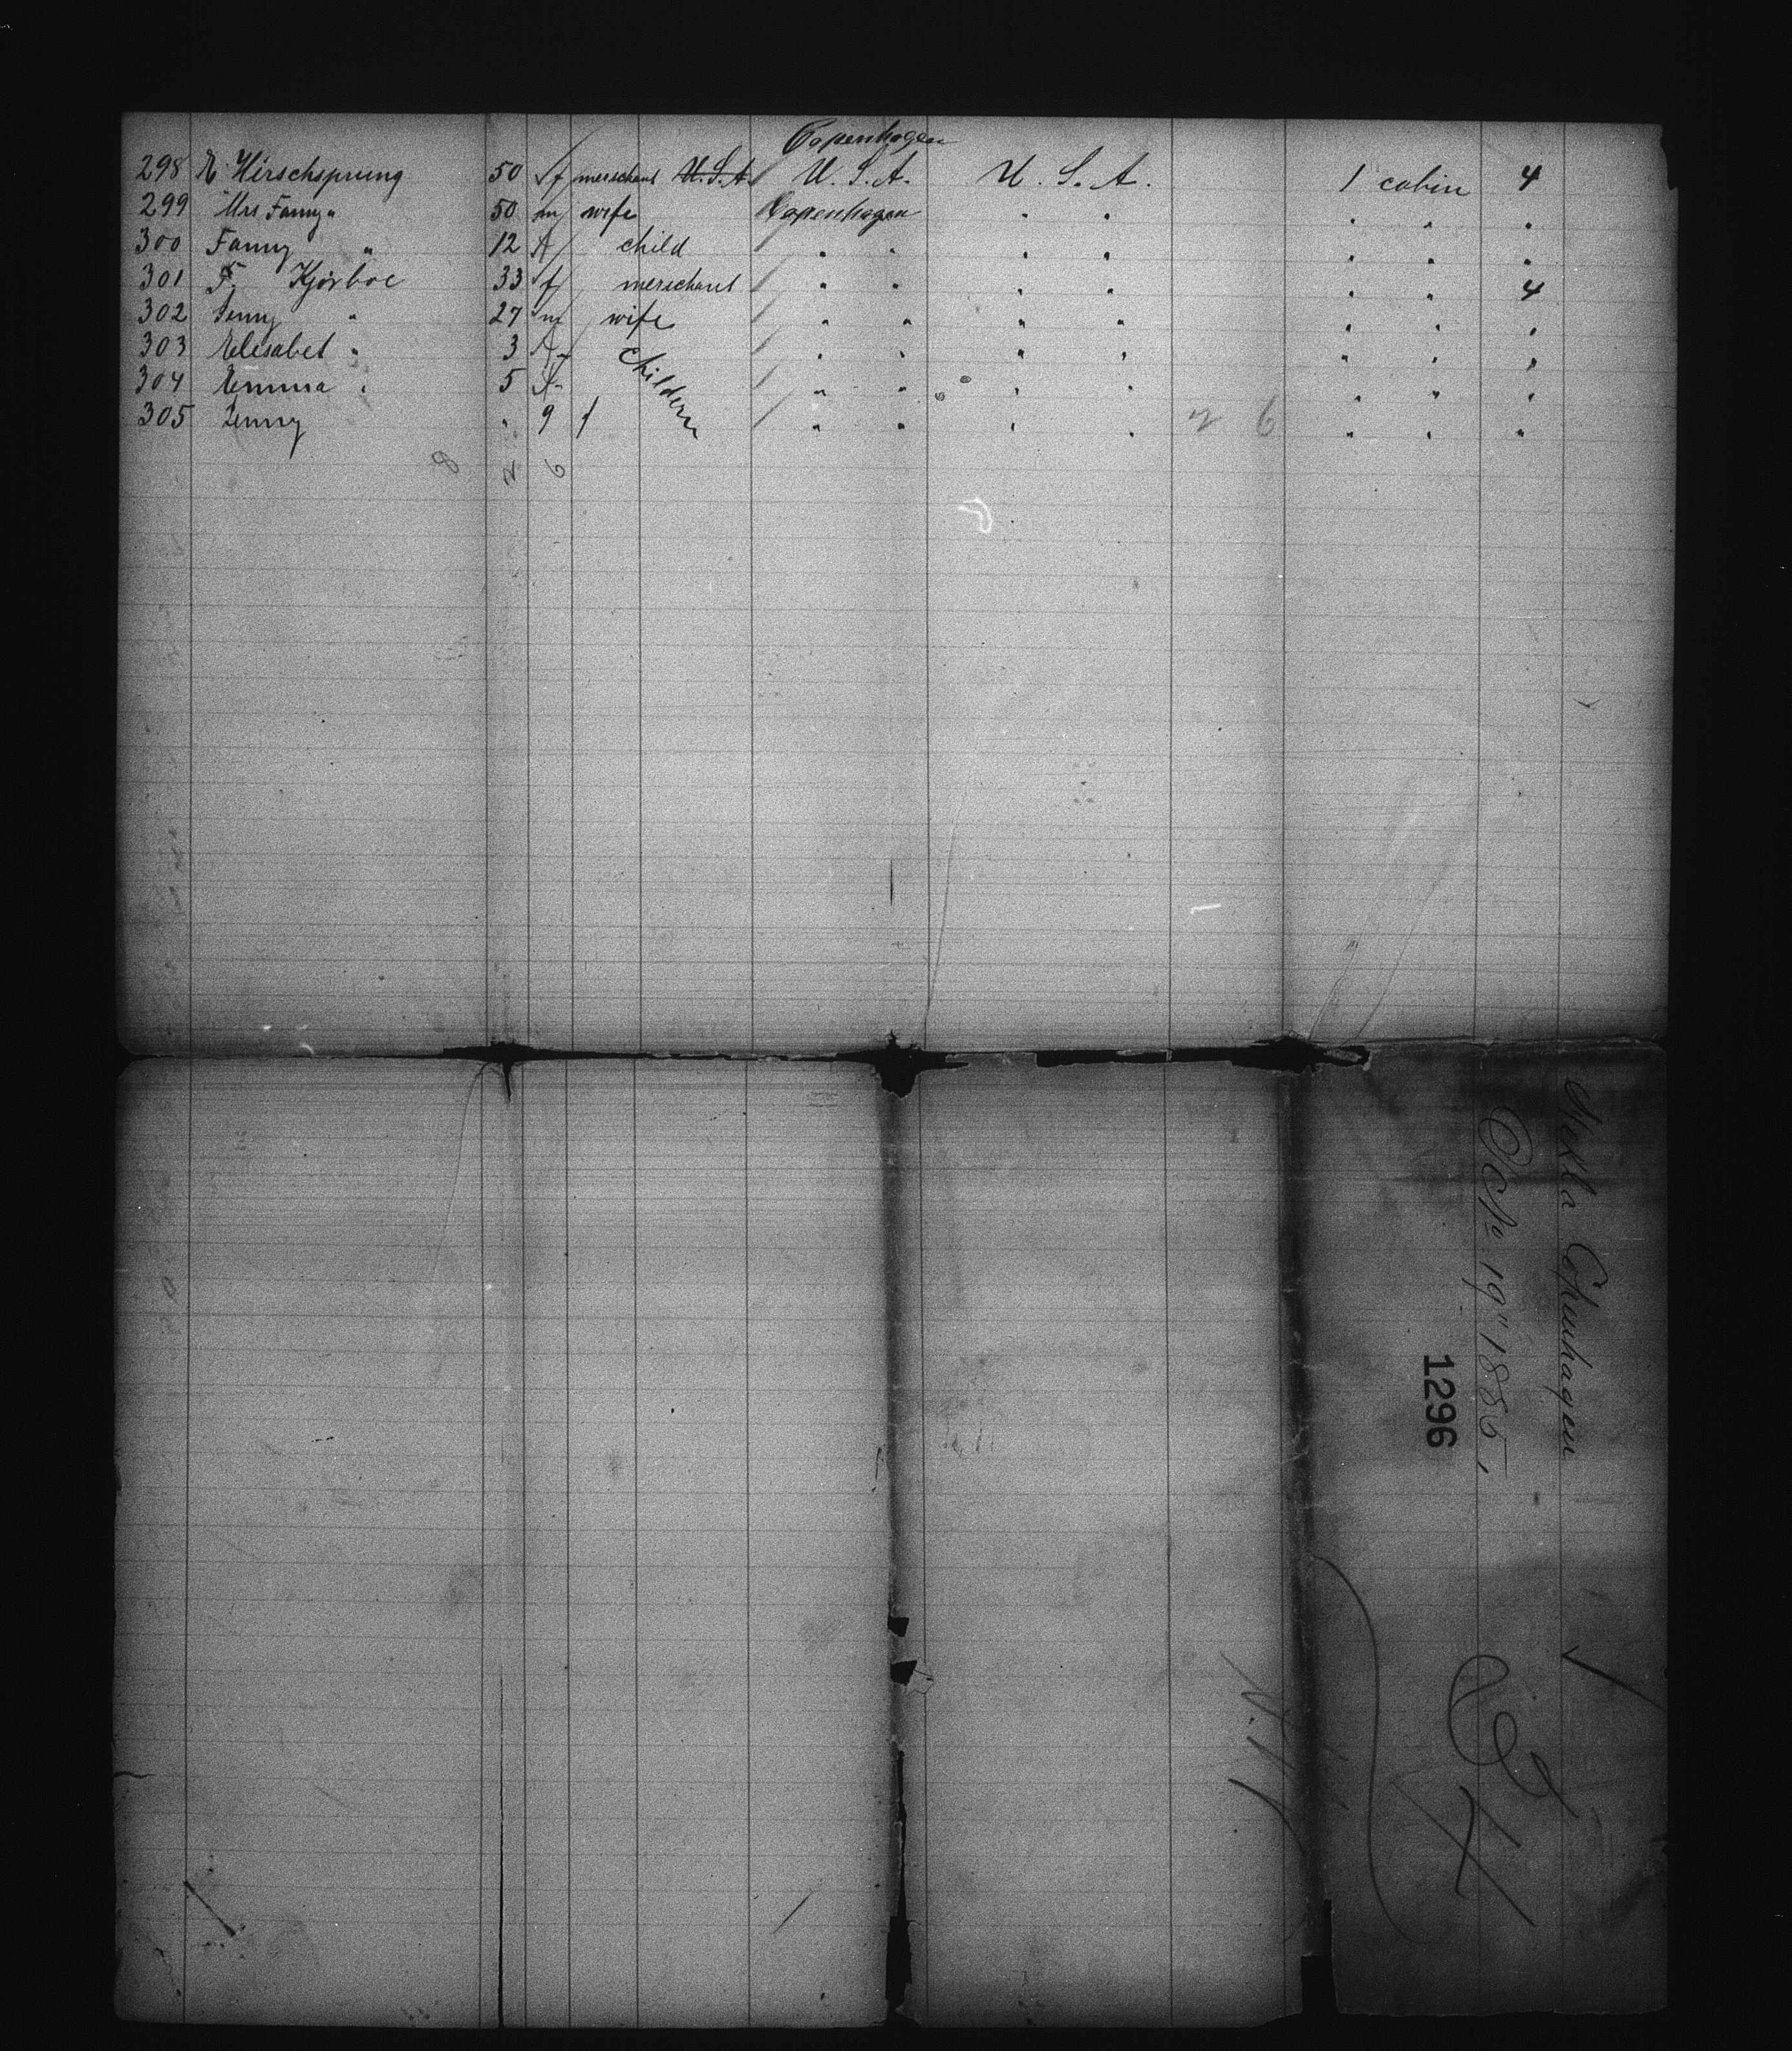 Copenhagen
298 E. Hirschsprung 50 f merschant U.S.A. U. S. A. U. S. A. 1 cabin 4
299 Mrs Fanny " 50 m wife Copenhagen " " " " "
300 Fanny " 12 f child " " " " " " "
301 F. Kjørboe 33 f merschant " " " " " " 4
302 Jenny " 27 m wife " " " " " " "
303 Elisabet " 3 f " " " " " " "
304 Emma " 5 f Childern " " " " " " "
305 Jenny " 9 f " " " " 2 6 " " "
8 2 6
Hekla Copenhagen
Sept 19" 1885,
1296